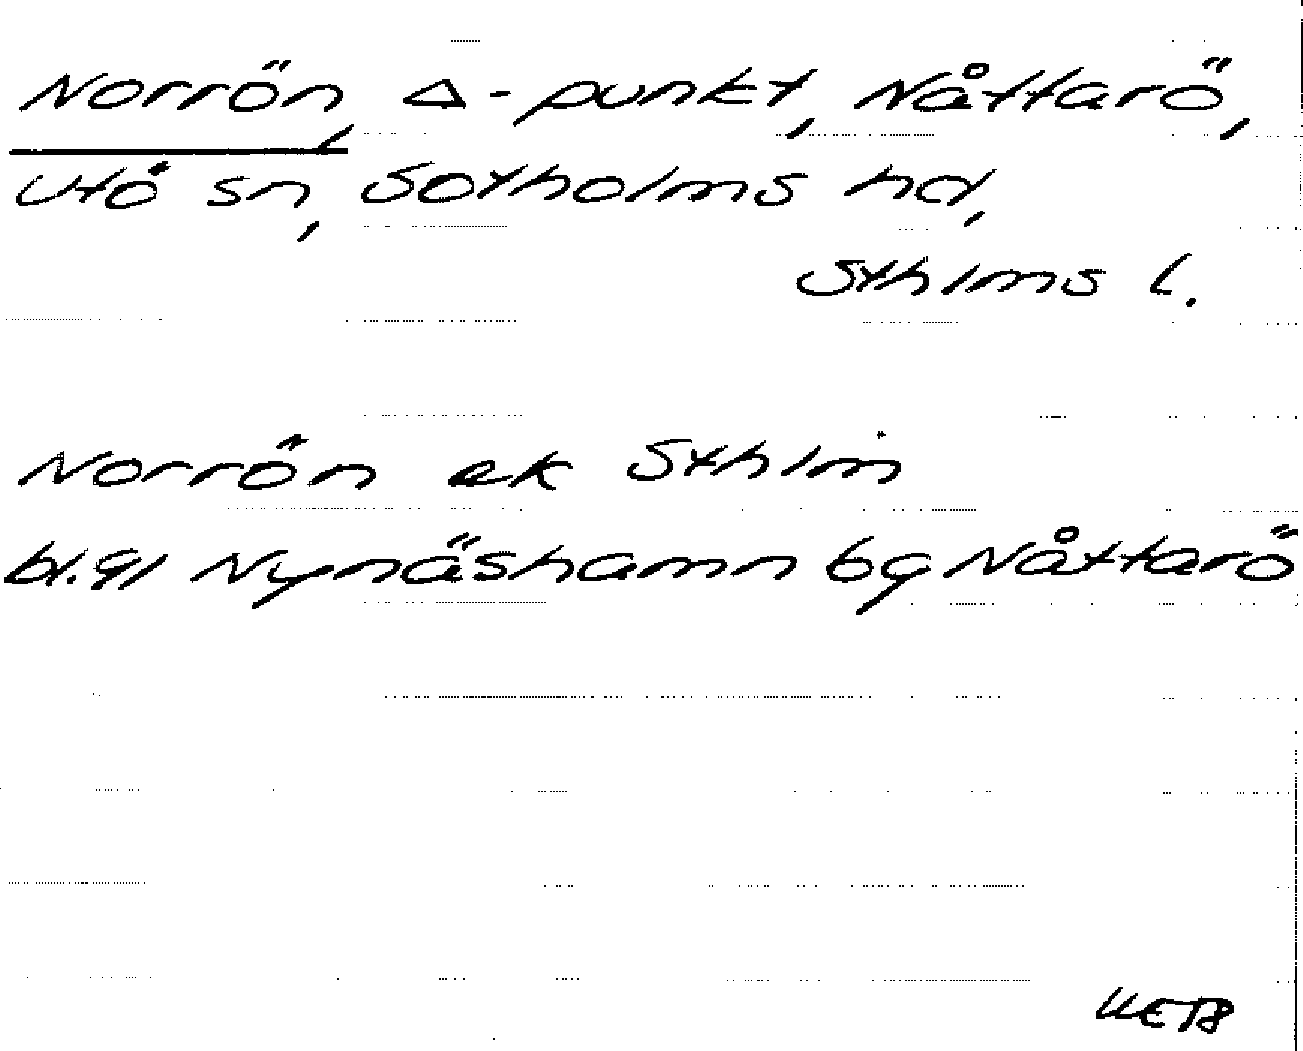 Norrön, Δ-punkt, Nåttarö,
Utö sn, Sotholms hd,
Sthlms l.
Norrön ek Sthlm
bl. 91 Nynäshamn bg Nåttarö